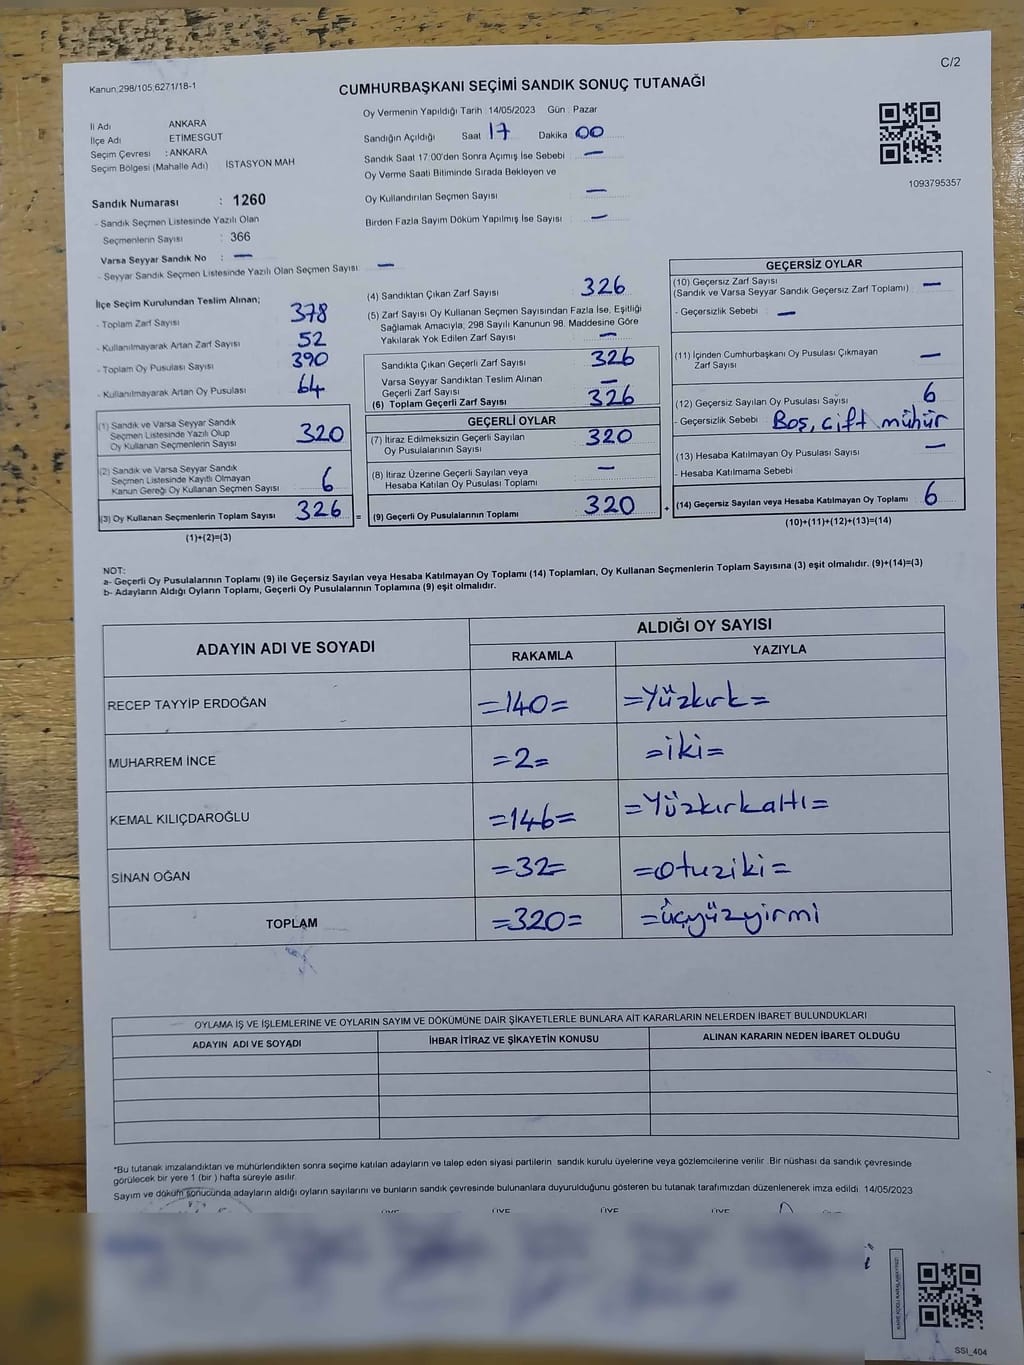 C/2
Kanun;298/105;6271/18-1
CUMHURBAŞKANI SEÇİMİ SANDIK SONUÇ TUTANAĞI
Oy Vermenin Yapıldığı Tarih : 14/05/2023 Gün : Pazar
İl Adı ANKARA
İlçe Adı ETİMESGUT
Seçim Çevresi : ANKARA
Seçim Bölgesi (Mahalle Adı) : İSTASYON MAH
Sandığın Açıldığı Saat 17 Dakika 00
Sandık Saat 17:00'den Sonra Açımış İse Sebebi : —
Oy Verme Saati Bitiminde Sırada Bekleyen ve
Oy Kullandırılan Seçmen Sayısı : —
Birden Fazla Sayım Döküm Yapılmış İse Sayısı : —
1093795357
Sandık Numarası : 1260
- Sandık Seçmen Listesinde Yazılı Olan
Seçmenlerin Sayısı : 366
Varsa Seyyar Sandık No : —
- Seyyar Sandık Seçmen Listesinde Yazılı Olan Seçmen Sayısı: —
İlçe Seçim Kurulundan Teslim Alınan;
- Toplam Zarf Sayısı 378
- Kullanılmayarak Artan Zarf Sayısı 52
- Toplam Oy Pusulası Sayısı 390
- Kullanılmayarak Artan Oy Pusulası 64
(1) Sandık ve Varsa Seyyar Sandık
Seçmen Listesinde Yazılı Olup
Oy Kullanan Seçmenlerin Sayısı 320
(2) Sandık ve Varsa Seyyar Sandık
Seçmen Listesinde Kayıtlı Olmayan
Kanun Gereği Oy Kullanan Seçmen Sayısı 6
(3) Oy Kullanan Seçmenlerin Toplam Sayısı 326 =
(1)+(2)=(3)
(4) Sandıktan Çıkan Zarf Sayısı 326
(5) Zarf Sayısı Oy Kullanan Seçmen Sayısından Fazla İse, Eşitliği
Sağlamak Amacıyla, 298 Sayılı Kanunun 98. Maddesine Göre
Yakılarak Yok Edilen Zarf Sayısı : —
Sandıkta Çıkan Geçerli Zarf Sayısı 326
Varsa Seyyar Sandıktan Teslim Alınan
Geçerli Zarf Sayısı —
(6) Toplam Geçerli Zarf Sayısı 326
GEÇERLİ OYLAR
(7) İtiraz Edilmeksizin Geçerli Sayılan
Oy Pusulalarının Sayısı 320
(8) İtiraz Üzerine Geçerli Sayılan veya
Hesaba Katılan Oy Pusulası Toplamı —
(9) Geçerli Oy Pusulalarının Toplamı 320 +
GEÇERSİZ OYLAR
(10) Geçersiz Zarf Sayısı
(Sandık ve Varsa Seyyar Sandık Geçersiz Zarf Toplamı) —
- Geçersizlik Sebebi : —
(11) İçinden Cumhurbaşkanı Oy Pusulası Çıkmayan
Zarf Sayısı —
(12) Geçersiz Sayılan Oy Pusulası Sayısı 6
- Geçersizlik Sebebi : Boş, çift mühür
(13) Hesaba Katılmayan Oy Pusulası Sayısı —
- Hesaba Katılmama Sebebi
(14) Geçersiz Sayılan veya Hesaba Katılmayan Oy Toplamı 6
(10)+(11)+(12)+(13)=(14)
NOT:
a- Geçerli Oy Pusulalarının Toplamı (9) ile Geçersiz Sayılan veya Hesaba Katılmayan Oy Toplamı (14) Toplamları, Oy Kullanan Seçmenlerin Toplam Sayısına (3) eşit olmalıdır. (9)+(14)=(3)
b- Adayların Aldığı Oyların Toplamı, Geçerli Oy Pusulalarının Toplamına (9) eşit olmalıdır.
ADAYIN ADI VE SOYADI ALDIĞI OY SAYISI
RAKAMLA YAZIYLA
RECEP TAYYİP ERDOĞAN =140= =Yüzkırk=
MUHARREM İNCE =2= =iki=
KEMAL KILIÇDAROĞLU =146= =Yüzkırkaltı=
SİNAN OĞAN =32= =otuziki=
TOPLAM =320= =üçyüzyirmi
OYLAMA İŞ VE İŞLEMLERİNE VE OYLARIN SAYIM VE DÖKÜMÜNE DAİR ŞİKAYETLERLE BUNLARA AİT KARARLARIN NELERDEN İBARET BULUNDUKLARI
ADAYIN ADI VE SOYADI İHBAR İTİRAZ VE ŞİKAYETİN KONUSU ALINAN KARARIN NEDEN İBARET OLDUĞU
*Bu tutanak imzalandıktan ve mühürlendikten sonra seçime katılan adayların ve talep eden siyasi partilerin sandık kurulu üyelerine veya gözlemcilerine verilir. Bir nüshası da sandık çevresinde
görülecek bir yere 1 (bir ) hafta süreyle asılır.
Sayım ve döküm sonucunda adayların aldığı oyların sayılarını ve bunların sandık çevresinde bulunanlara duyurulduğunu gösteren bu tutanak tarafımızdan düzenlenerek imza edildi. 14/05/2023
ÜYE ÜYE ÜYE ÜYE
SSİ_404